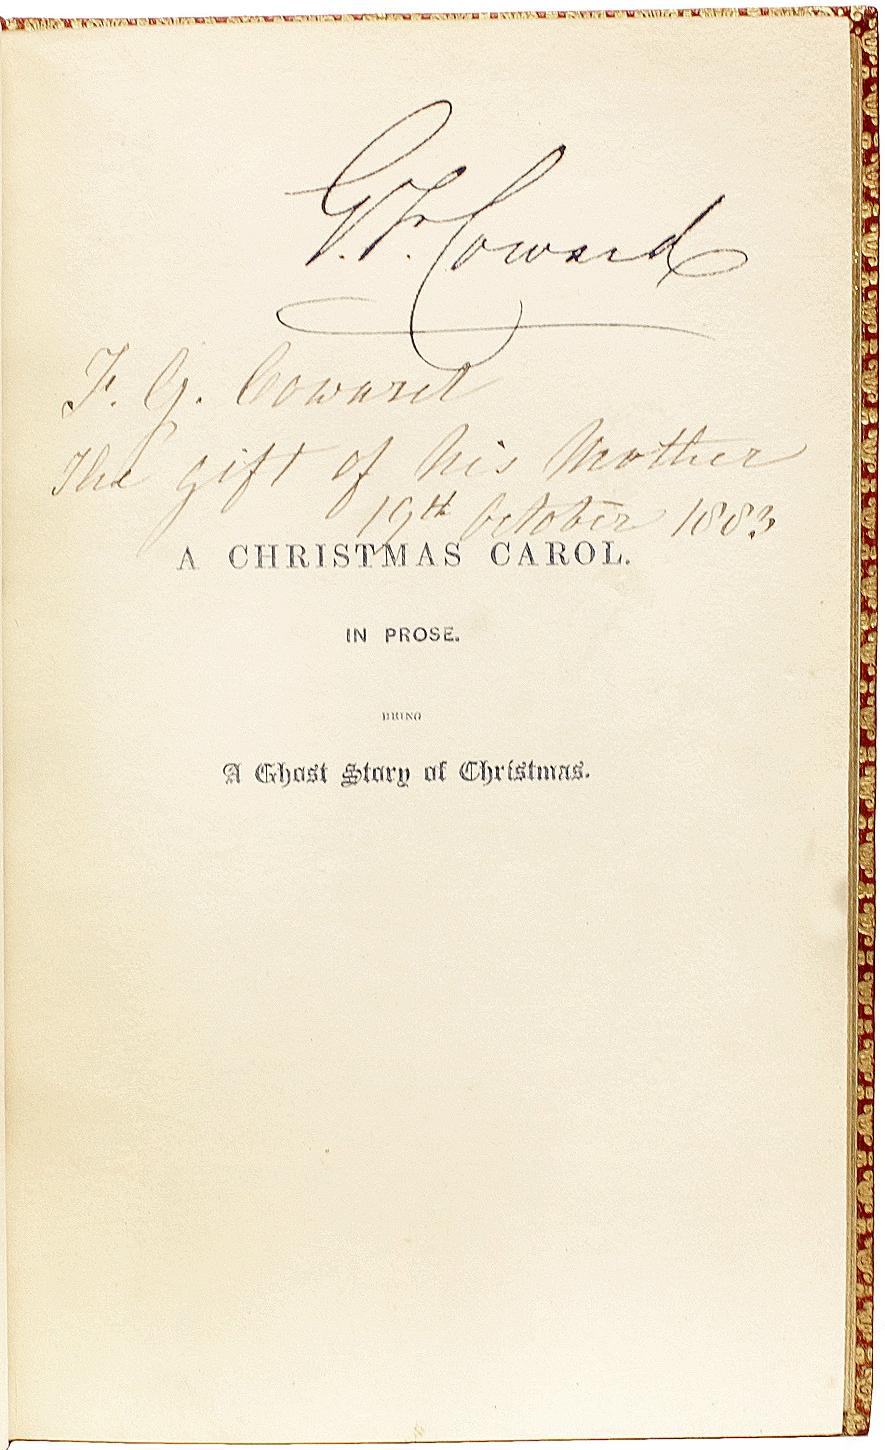 G.F. Coward
F. G. Coward
The gift of his Mother
19th October 1883
A CHRISTMAS CAROL.
IN PROSE.
BEING
A Ghost Story of Christmas.